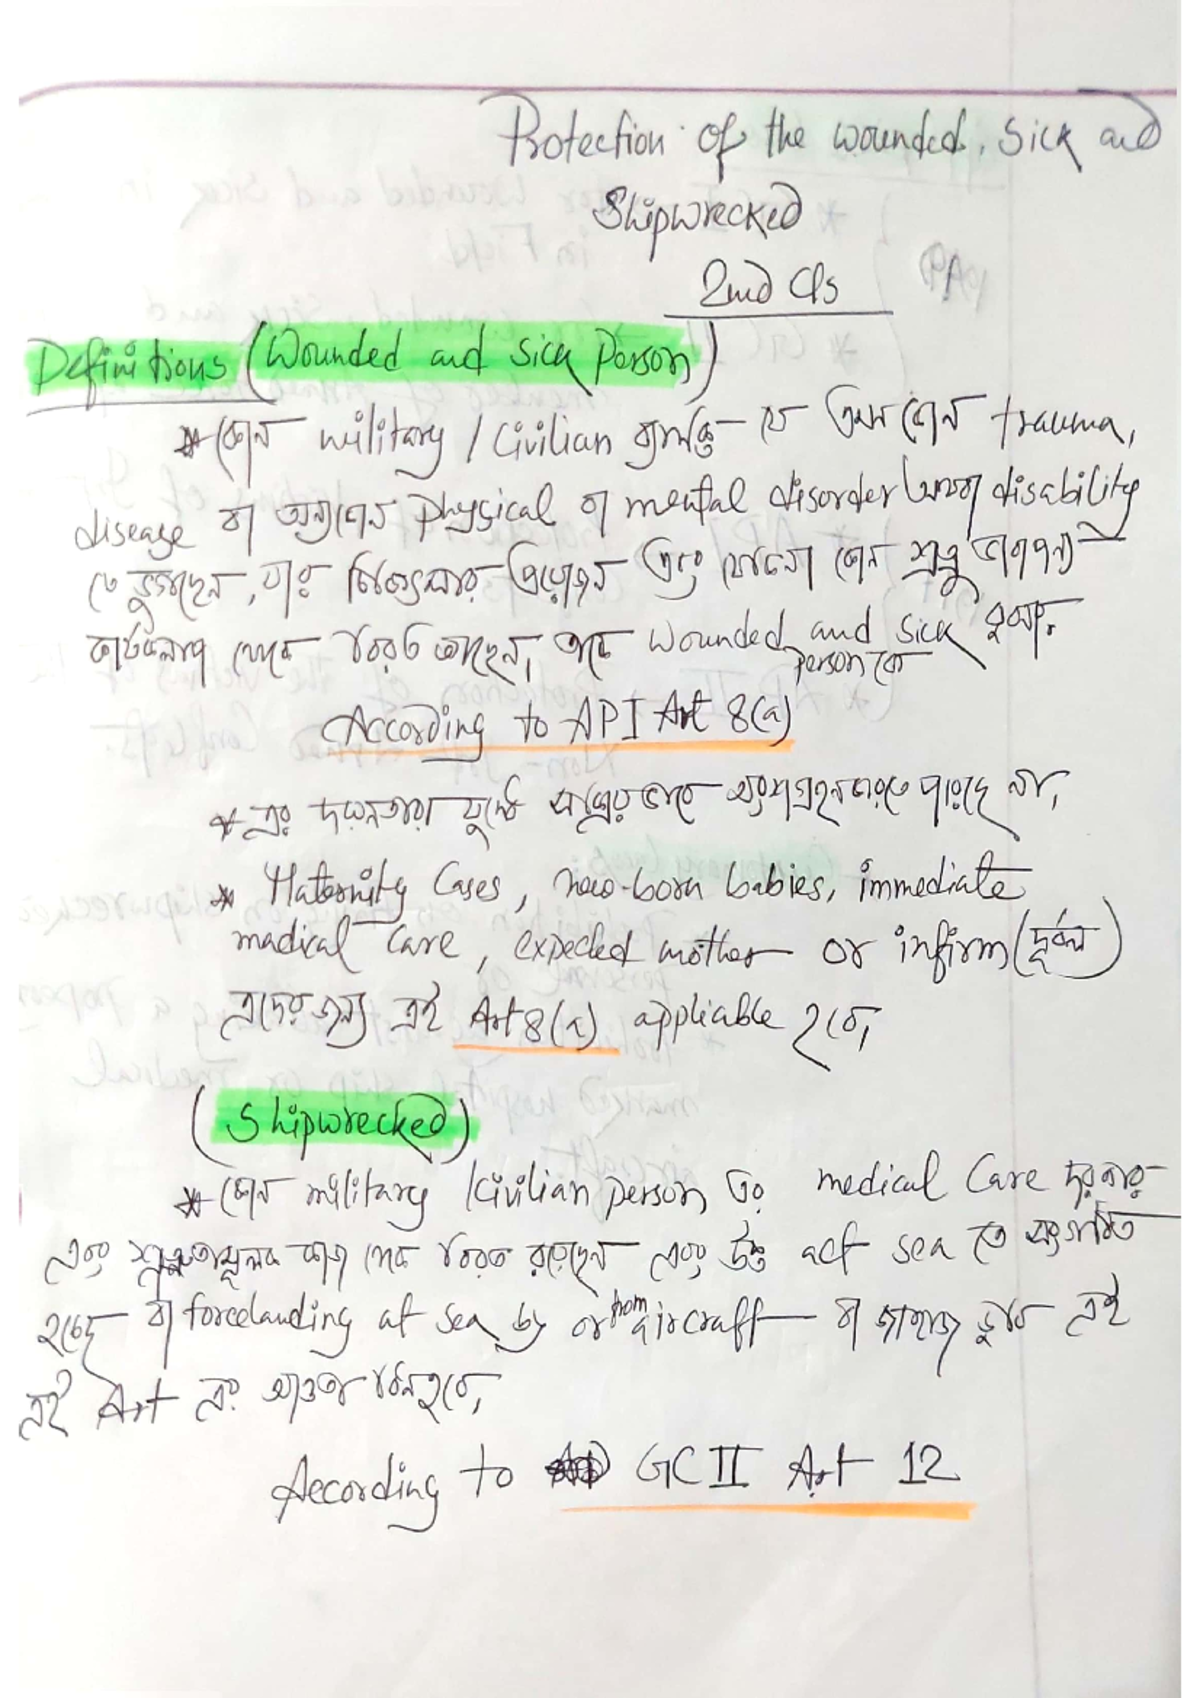 Protection of the wounded, sick and
Shipwrecked
2nd Cls
Definitions (Wounded and sick Person)
* কোন military / Civilian ব্যক্তি যে এমন কোন trauma,
disease বা অন্যকোন physical বা mental disorder অথবা disability
তে ভুগছেন, যার চিকিৎসার প্রয়োজন এবং যেকোনো
কার্যকলাপ থেকে বিরত আছেন, তাকে wounded and sick
person কে বুঝায়,
According to API Art 8(a)
* এর যুদ্ধে অংশগ্রহন করতে পারছে না,
* Maternity Cases, new-born babies, immediate
madical care, expected mother or infirm (দূর্বল)
এদের জন্য এই Art 8(a) appliable হবে,
(Shipwrecked)
* কোন military / civilian person এর medical Care দরকার
এবং শত্রুতামূলক কাজ থেকে বিরত রয়েছেন এবং উক্ত act sea তে সংগঠিত
হচ্ছে বা forcelanding at sea by or from aircraft বা জাহাজ ডুবি এই
এই Art এর আওতাধীন হবে,
According to GC II Art 12